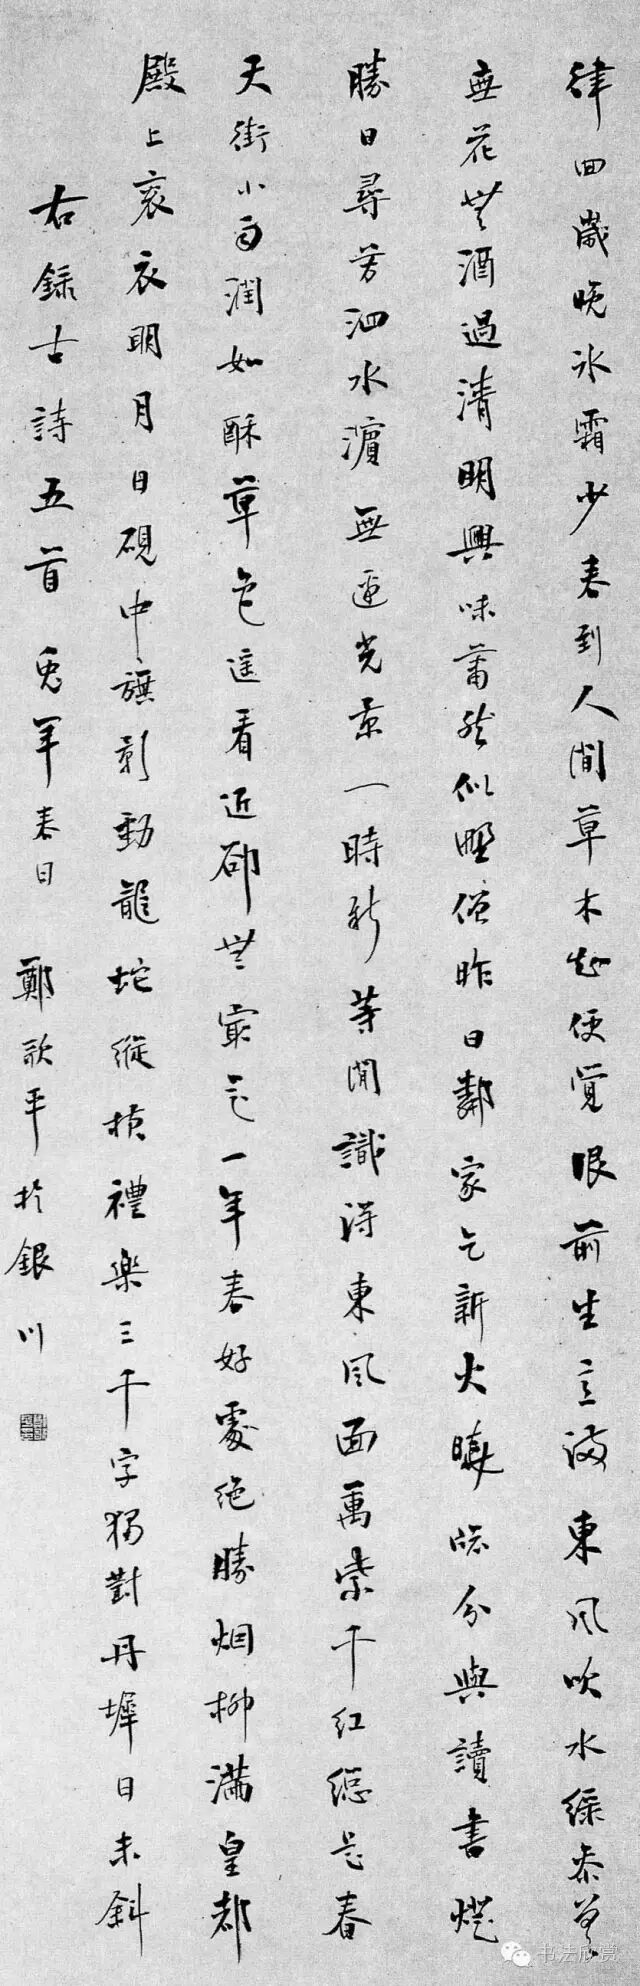 律回歲晚冰霜少春到人間草木知便覺眼前生意滿東風吹水綠參差
無花無酒過清明興味蕭然似野僧昨日鄰家乞新火曉窗分與讀書燈
勝日尋芳泗水濱無邊光景一時新等閒識得東風面萬紫千紅總是春
天街小雨潤如酥草色遙看近卻無最是一年春好處絕勝烟柳滿皇都
殿上袞衣明月日硯中旗影動龍蛇縱橫禮樂三千字獨對丹墀日未斜
右錄古詩五首兔年春日鄭歌平於銀川
书法欣赏